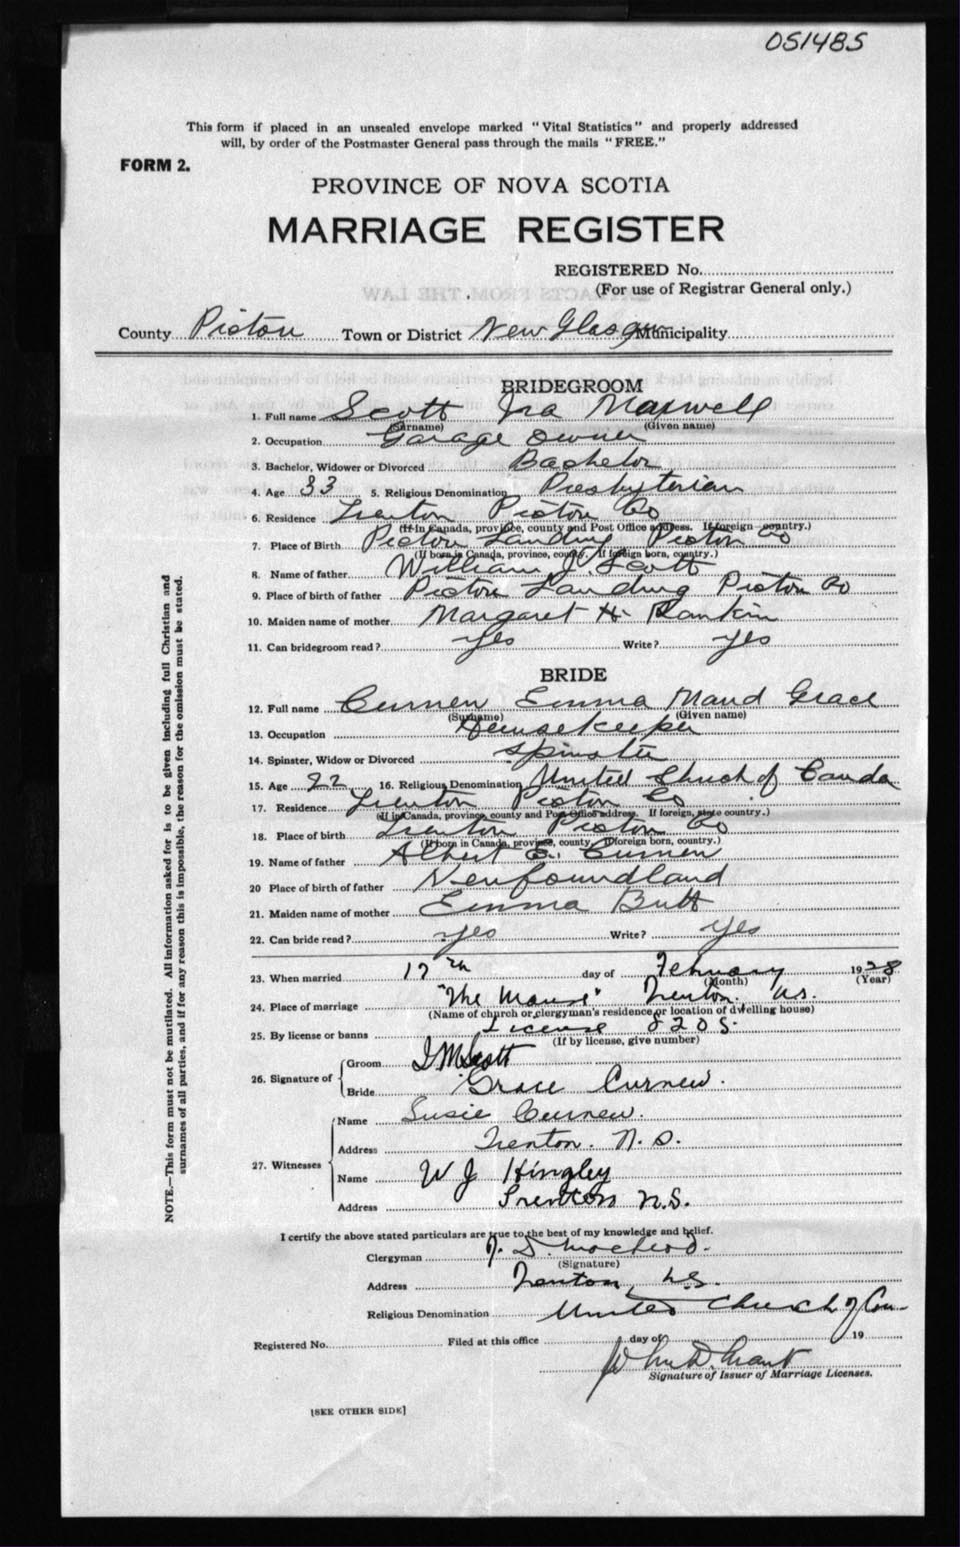 051485
This form if placed in an unsealed envelope marked "Vital Statistics" and properly addressed
will, by order of the Postmaster General pass through the mails "FREE."
FORM 2.
PROVINCE OF NOVA SCOTIA
MARRIAGE REGISTER
REGISTERED No.
(For use of Registrar General only.)
County Pictou Town or District New Glasgow Municipality
BRIDEGROOM
1. Full name Scott Ira Maxwell
(Surname) (Given name)
2. Occupation Garage Owner
3. Bachelor, Widower or Divorced Bachelor
4. Age 33 5. Religious Denomination Presbyterian
6. Residence Trenton Pictou Co
(If in Canada, province, county and Post Office address. If foreign country.)
7. Place of Birth Pictou Landing Pictou Co
(If born in Canada, province, county. If foreign born, country.)
8. Name of father William J. Scott
9. Place of birth of father Pictou Landing Pictou Co
10. Maiden name of mother Margaret H. Rankin
11. Can bridegroom read? yes Write? yes
BRIDE
12. Full name Curnew Emma Maud Grace
(Surname) (Given name)
13. Occupation Housekeeper
14. Spinster, Widow or Divorced Spinster
15. Age 22 16. Religious Denomination United Church of Canada
17. Residence Trenton Pictou Co
(If in Canada, province, county and Post Office address. If foreign, state country.)
18. Place of birth Trenton Pictou Co
(If born in Canada, province, county. If foreign born, country.)
19. Name of father Albert E. Curnew
20 Place of birth of father Newfoundland
21. Maiden name of mother Emma Butt
22. Can bride read? yes Write? yes
23. When married 17th day of February 1928
(Month) (Year)
24. Place of marriage "The Manse" Trenton, N.S.
(Name of church or clergyman's residence or location of dwelling house)
25. By license or banns License 8205.
(If by license, give number)
26. Signature of Groom I M Scott
Bride Grace Curnew.
27. Witnesses Name Susie Curnew.
Address Trenton. N.S.
Name W J Hingley
Address Trenton N.S.
I certify the above stated particulars are true to the best of my knowledge and belief.
Clergyman
(Signature)
Address Trenton, N.S.
Religious Denomination United Church of Can-
Registered No. Filed at this office day of 19
John D. Grant
Signature of Issuer of Marriage Licenses.
[SEE OTHER SIDE]
NOTE.—This form must not be mutilated. All information asked for is to be given including full Christian and
surnames of all parties, and if for any reason this is impossible, the reason for the omission must be stated.